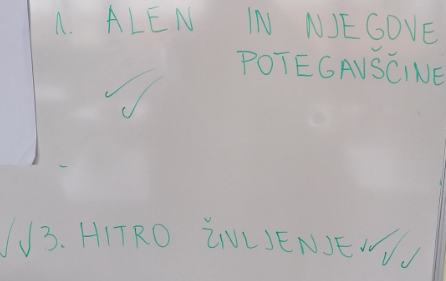 1. ALEN IN NJEGOVE
POTEGAVŠČINE
✓✓
-
✓✓3. HITRO ŽIVLJENJE ✓✓✓